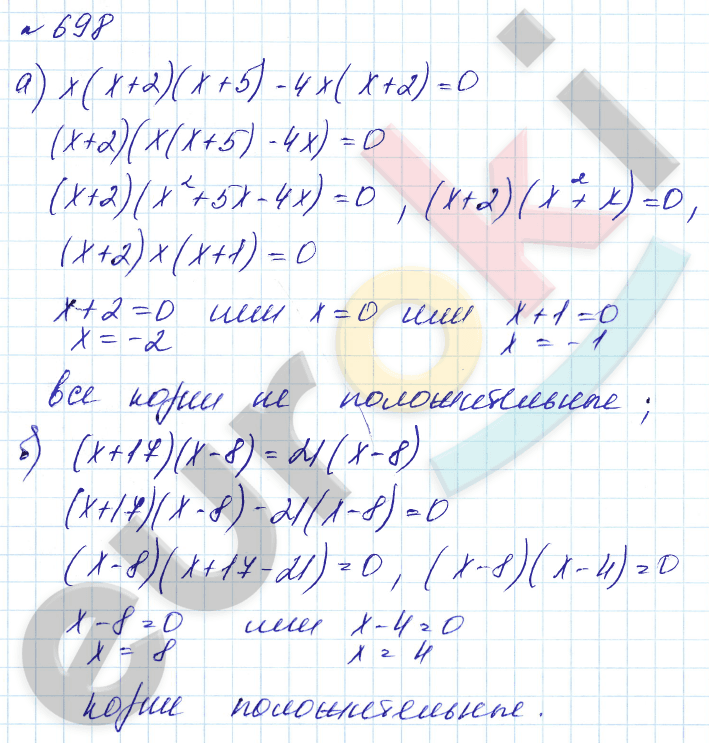 № 698
а) x(x+2)(x+5) - 4x(x+2) = 0
(x+2)(x(x+5) - 4x) = 0
(x+2)(x²+5x-4x) = 0, (x+2)(x²+x) = 0,
(x+2)x(x+1) = 0
x+2=0 или x=0 или x+1=0
x = -2 x = -1
все корни не положительные;
б) (x+17)(x-8) = 21(x-8)
(x+17)(x-8) - 21(x-8) = 0
(x-8)(x+17-21) = 0, (x-8)(x-4) = 0
x-8=0 или x-4=0
x = 8 x = 4
корни положительные.
euroki